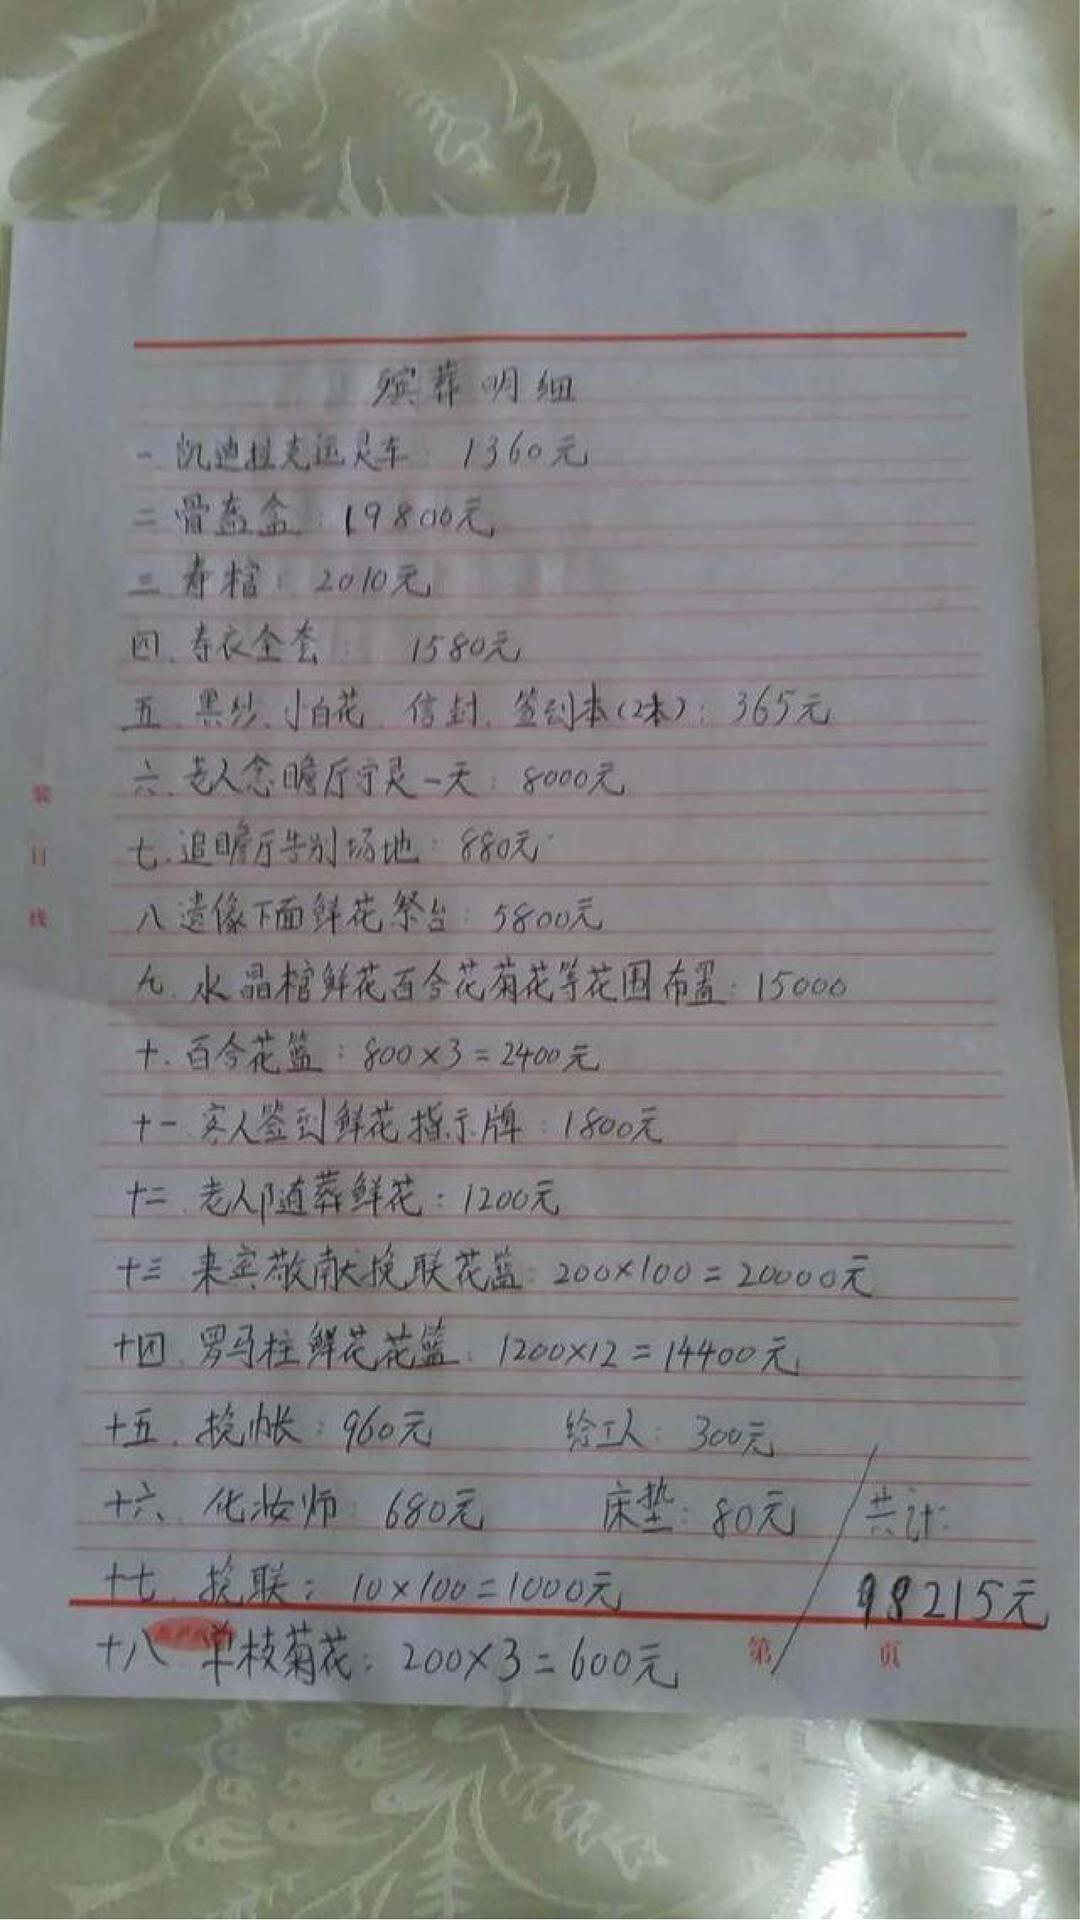 殡葬明细
一.凯迪拉克运灵车:1360元
二骨灰盒:19800元
三寿棺:2010元
四.寿衣全套:1580元
五.黑纱、小白花、信封、签到本(2本):365元
六.老人念瞻厅守灵一天:8000元
七.追瞻厅告别场地:880元
八遗像下面鲜花祭台:5800元
九.水晶棺鲜花百合花菊花等花围布置:15000
十.百合花篮:800×3=2400元
十一客人签到鲜花指示牌:1800元
十二.老人随葬鲜花:1200元
十三来宾敬献挽联花篮:200×100=20000元
十四.罗马柱鲜花花篮:1200×12=14400元
十五.挽帐:960元 给工人:300元
十六、化妆师:680元 床垫:80元 共计:
十七.挽联:10×100=1000元 98215元
十八 单枝菊花:200×3=600元
第 页
装订线